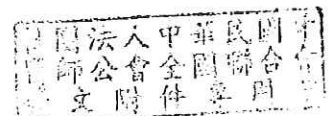 團法人中華民國
師公會全國聯合
文附件